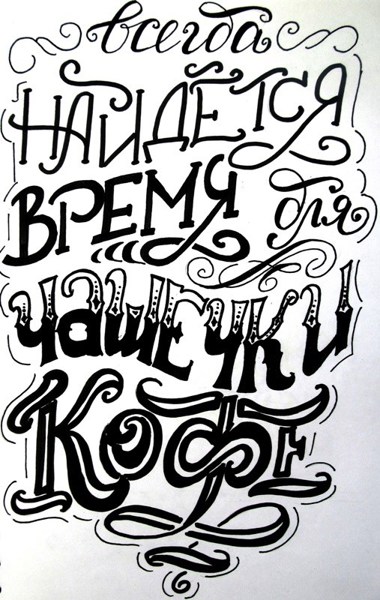 всегда
НАЙДЁТСЯ
ВРЕМЯ для
ЧАШЕЧКИ
КОФЕ